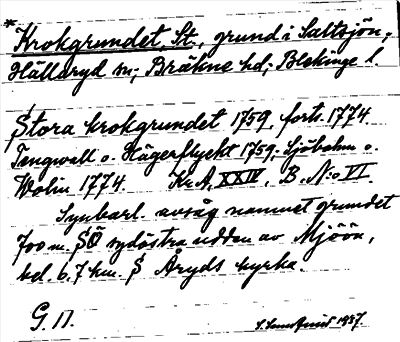 * Krokgrundet, St., grund i Saltsjön;
Hällaryd sn; Bräkne hd; Blekinge l.
Stora krokgrundet 1759, forts. 1774.
Tengwall o. Hägerflyckt 1759; Sjöbohm o.
Wolin 1774. Kr.A. XXIV, B. N:o VI.
Synbarl. avsåg namnet grundet
700 m. SÖ sydöstra udden av Mjöön,
bel. 6,7 km. S Åryds kyrka.
G. П. 1937.